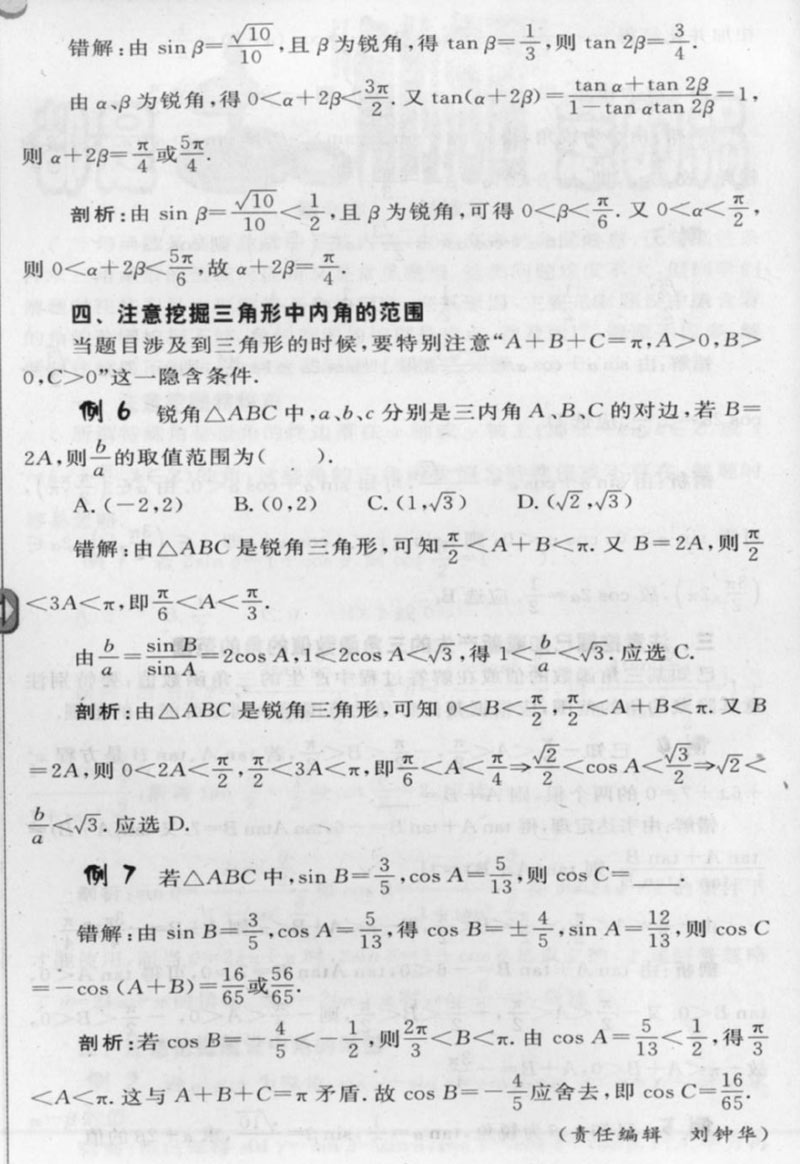 错解:由 sin β=√10/10,且 β 为锐角,得 tan β=1/3,则 tan 2β=3/4.
由 α、β 为锐角,得 0<α+2β<3π/2. 又 tan(α+2β)=(tan α+tan 2β)/(1-tan αtan 2β)=1,
则 α+2β=π/4或5π/4.
剖析:由 sin β=√10/10<1/2,且 β 为锐角,可得 0<β<π/6. 又 0<α<π/2,
则 0<α+2β<5π/6,故 α+2β=π/4.
四、注意挖掘三角形中内角的范围
当题目涉及到三角形的时候,要特别注意“A+B+C=π,A>0,B>
0,C>0”这一隐含条件.
例 6 锐角△ABC 中,a、b、c 分别是三内角 A、B、C 的对边,若 B=
2A,则b/a的取值范围为( ).
A. (-2,2) B. (0,2) C. (1,√3) D. (√2,√3)
错解:由△ABC 是锐角三角形,可知π/2<A+B<π. 又 B=2A,则π/2
<3A<π,即π/6<A<π/3.
由b/a=sin B/sin A=2cos A,1<2cos A<√3,得 1<b/a<√3. 应选 C.
剖析:由△ABC 是锐角三角形,可知 0<B<π/2,π/2<A+B<π. 又 B
=2A,则 0<2A<π/2,π/2<3A<π,即π/6<A<π/4⇒√2/2<cos A<√3/2⇒√2<
b/a<√3. 应选 D.
例 7 若△ABC 中,sin B=3/5,cos A=5/13,则 cos C=____.
错解:由 sin B=3/5,cos A=5/13,得 cos B=±4/5,sin A=12/13,则 cos C
=-cos (A+B)=16/65或56/65.
剖析:若 cos B=-4/5<-1/2,则2π/3<B<π. 由 cos A=5/13<1/2,得π/3
<A<π. 这与 A+B+C=π 矛盾. 故 cos B=-4/5应舍去,即 cos C=16/65.
(责任编辑 刘钟华)